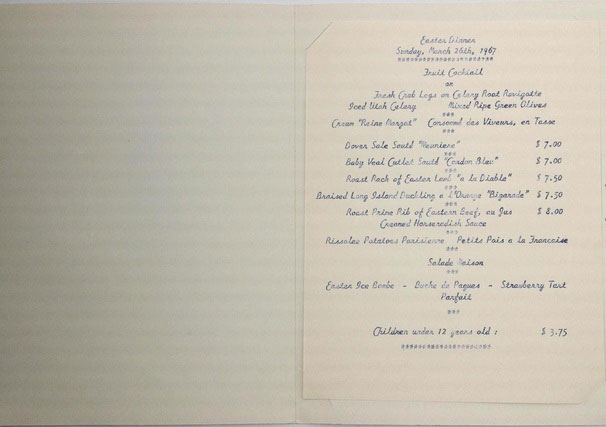 Easter Dinner
Sunday, March 26th, 1967
Fruit Cocktail
or
Fresh Crab Legs on Celery Root Ravigotte
Iced Utah Celery Mixed Ripe Green Olives
***
Cream "Reine Margot" Consommé des Viveurs, en Tasse
***
Dover Sole Sauté "Meuniere" $ 7.00
***
Baby Veal Cutlet Sauté "Cordon Bleu" $ 7.00
***
Roast Rack of Easter Lamb "a la Diable" $ 7.50
***
Braised Long Island Duckling a l'Orange "Bigarade" $ 7.50
***
Roast Prime Rib of Eastern Beef, au Jus $ 8.00
Creamed Horseradish Sauce
***
Rissolee Potatoes Parisienne Petits Pois a la Francaise
***
Salade Maison
***
Easter Ice Bombe - Buche de Paques - Strawberry Tart
Parfait
***
Children under 12 years old : $ 3.75